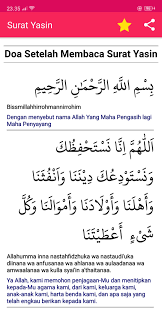 23.35
Surat Yasin
Doa Setelah Membaca Surat Yasin
بِسْمِ اللَّهِ الرَّحْمَٰنِ الرَّحِيمِ
Bissmillahhirohmannirrohim
Dengan menyebut nama Allah Yang Maha Pengasih lagi
Maha Penyayang
اَللّٰهُمَّ إِنَّا نَسْتَحْفِظُكَ
وَنَسْتَوْدِعُكَ دِيْنَنَا وَأَنْفُسَنَا
وَأَهْلَنَا وَأَوْلَادَنَا وَأَمْوَالَنَا وَكُلَّ
شَيْءٍ أَعْطَيْتَنَا
Allahumma inna nastahfidzhuka wa nastaudi'uka
diinana wa anfusanaa wa ahlanaa wa aulaadanaa wa
amwaalanaa wa kulla syai'in a'thaitanaa.
Ya Allah, kami memohon penjagaan-Mu dan menitipkan
kepada-Mu agama kami, dari kami, keluarga kami,
anak-anak kami, harta benda kami, dan apa saja yang
telah engkau berikan kepada kami.